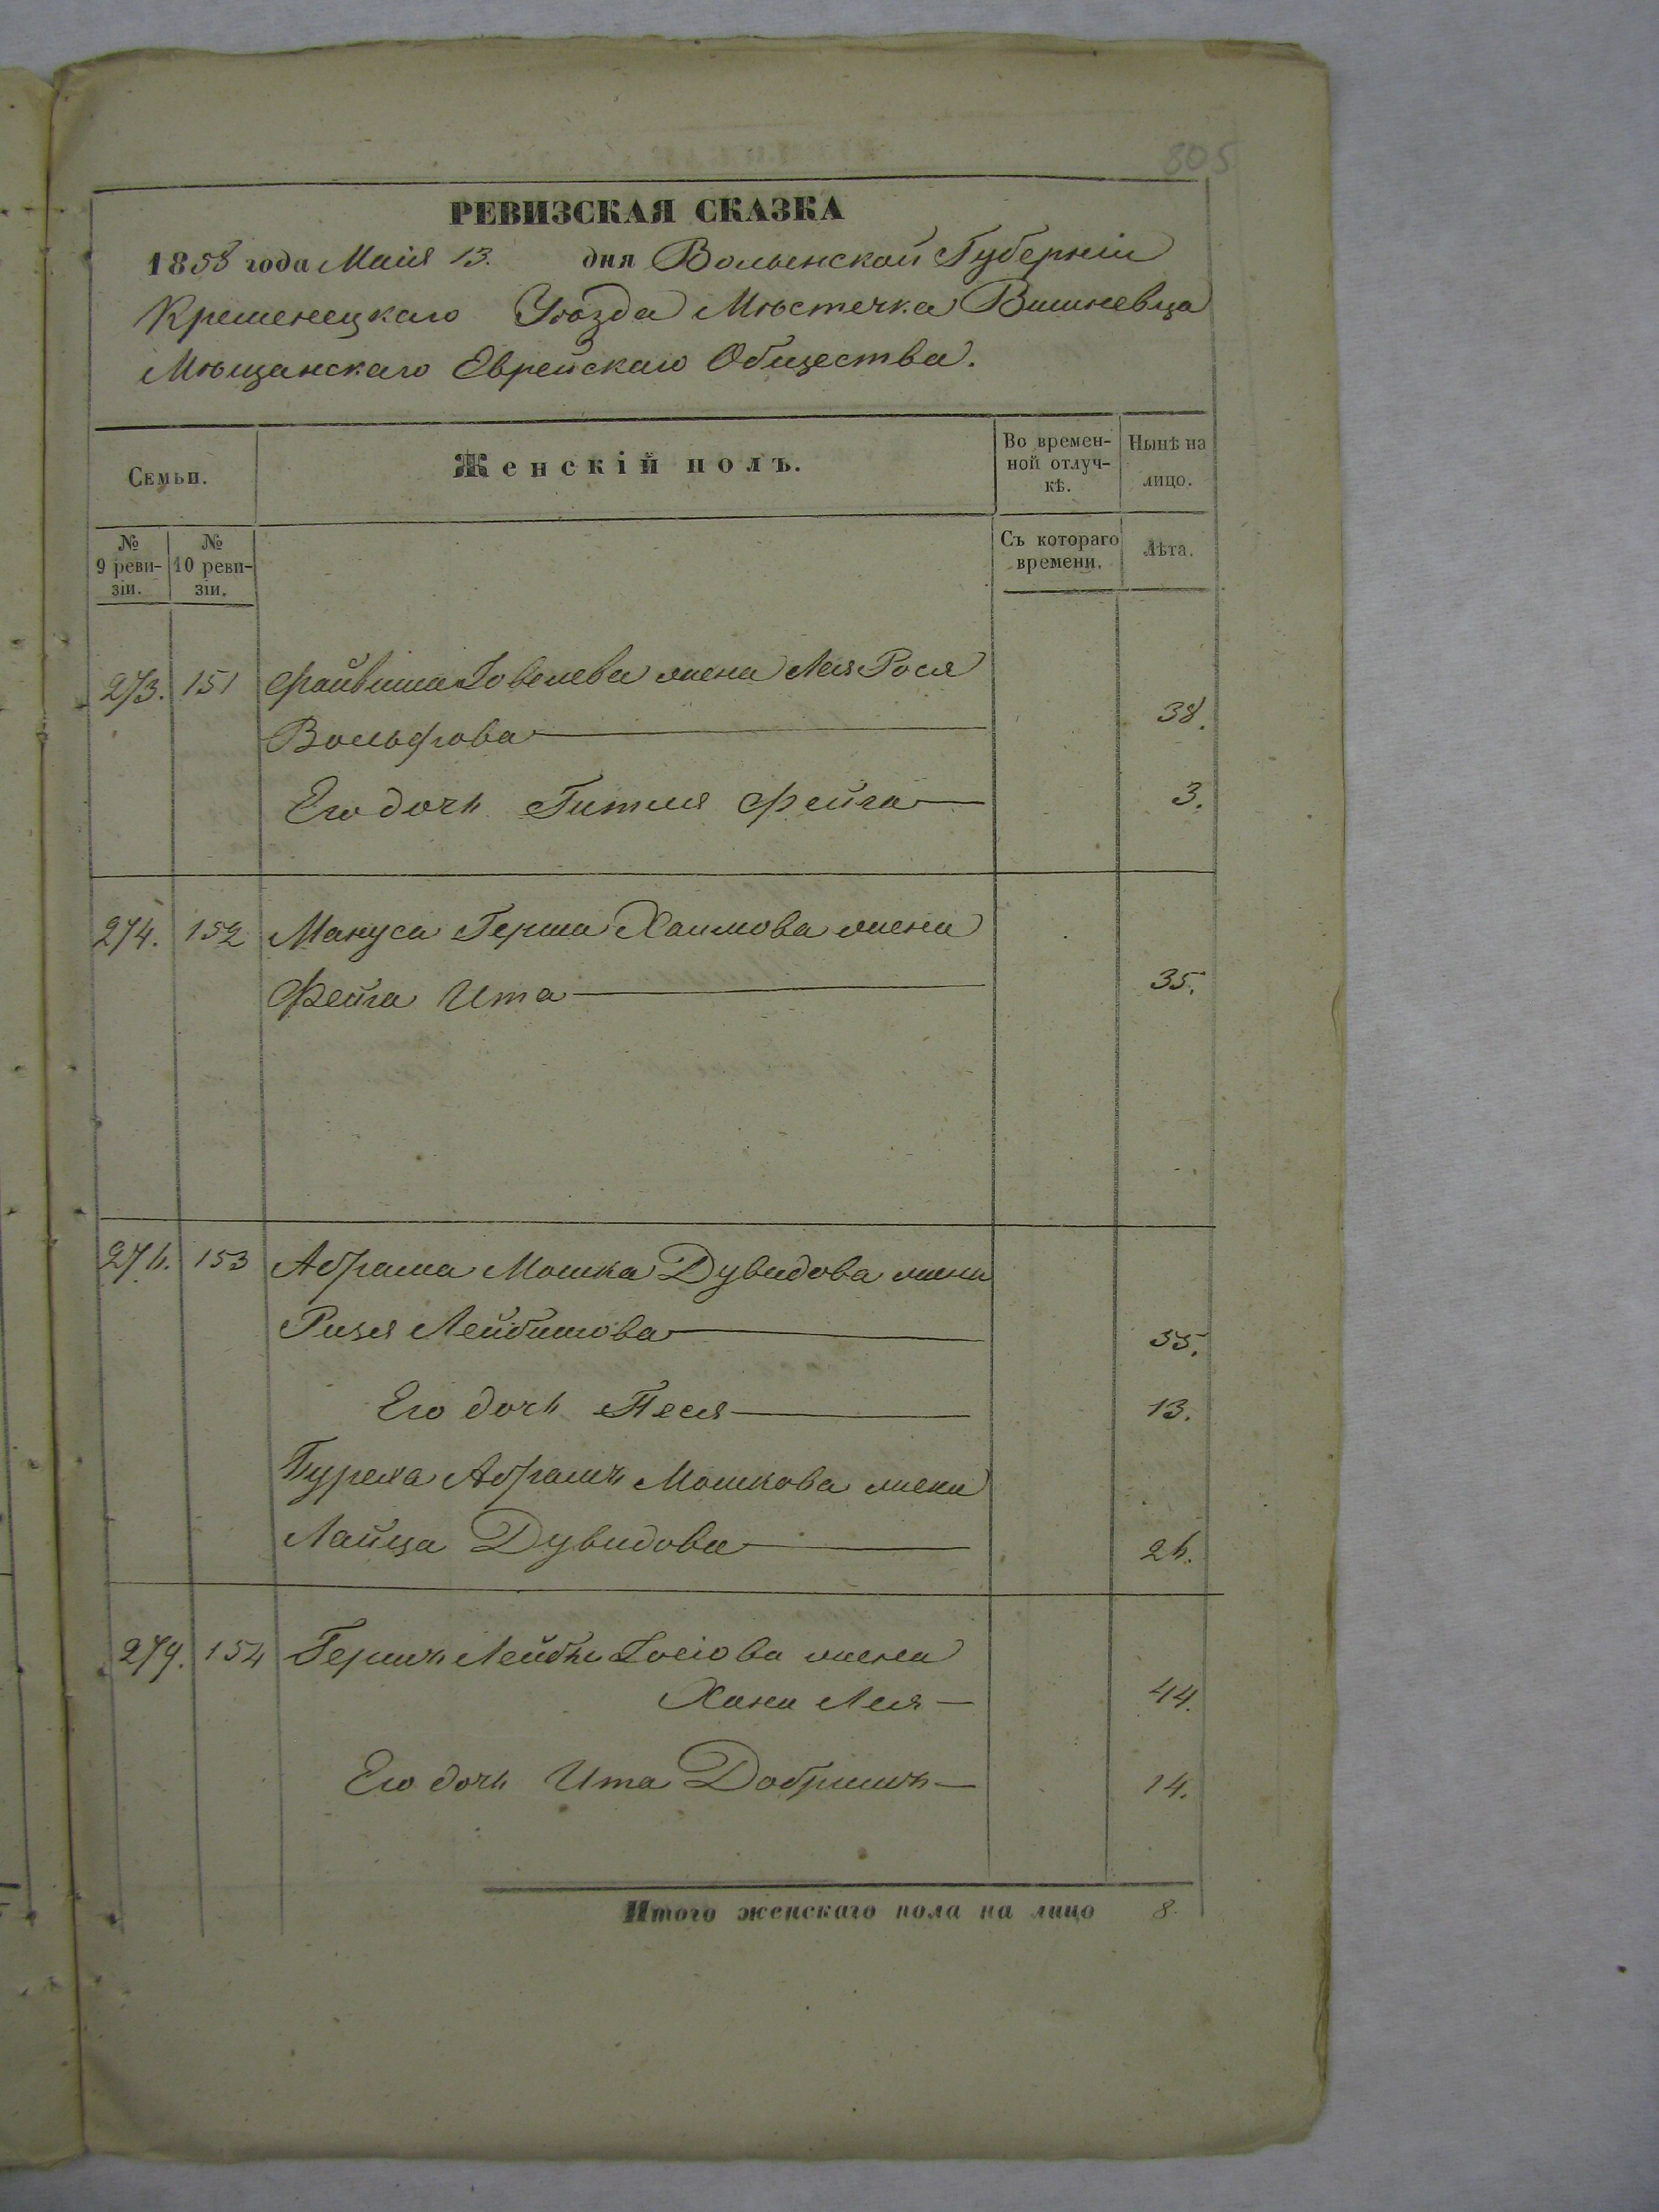 805
РЕВИЗСКАЯ СКАЗКА
1858 года Маія 13. дня Волынской Губерніи
Кременецкаго Уѣзда Мѣстечка Вишневца
Мѣщанскаго Еврейскаго Общества.
Семьи. Женскій полъ. Во времен-ной отлуч-кѣ. Нынѣ на лицо.
№ 9 реви-зіи. № 10 реви-зіи. Съ котораго времени. Лѣта.
273. 151 Файвиша Іовелева жена Лея Рося
Вольфова 38.
Его дочь Гитля Фейга 3.
274. 152 Мануса Герша Хаимова жена
Фейга Ита 35.
276. 153 Абрама Мошка Дувидова жена
Ризя Лейбишова 55.
Его дочь Песя 13.
Абрамъ Мошкова жена
Лайца Дувидова 26.
279. 154 Гершъ Лейбы Іосіова жена
Хана Лея 44.
Его дочь Ита Добришъ 14.
Итого женскаго пола на лицо 8.